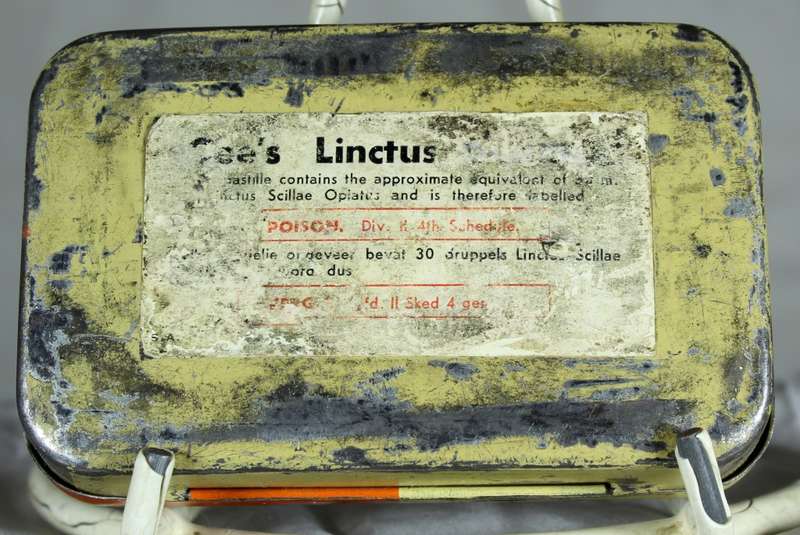 Gee's Linctus
pastille contains the approximate equivalent of
Scillae Opiatus and is therefore labelled
POISON. Div. II 4th Schedule.
ongeveer bevat 30 druppels Linctus Scillae
dus
II Sked 4 ges